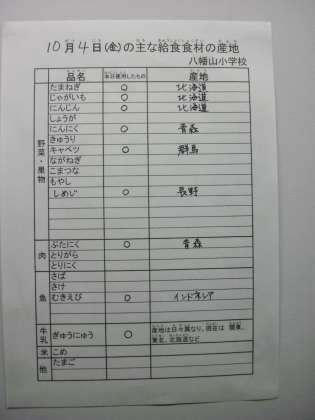 10月4日(金)の主な給食食材の産地
八幡山小学校
品名 本日使用したもの 産地
野菜・果物
たまねぎ ○ 北海道
じゃがいも ○ 北海道
にんじん ○ 北海道
しょうが
にんにく ○ 青森
きゅうり
キャベツ ○ 群馬
ながねぎ
こまつな
もやし
しめじ ○ 長野
肉
ぶたにく ○ 青森
とりがら
とりにく
魚
さば
さけ
むきえび ○ インドネシア
牛乳
ぎゅうにゅう ○ 産地は日々異なり、現在は 関東、
東北、北海道など
米 こめ
他 たまご